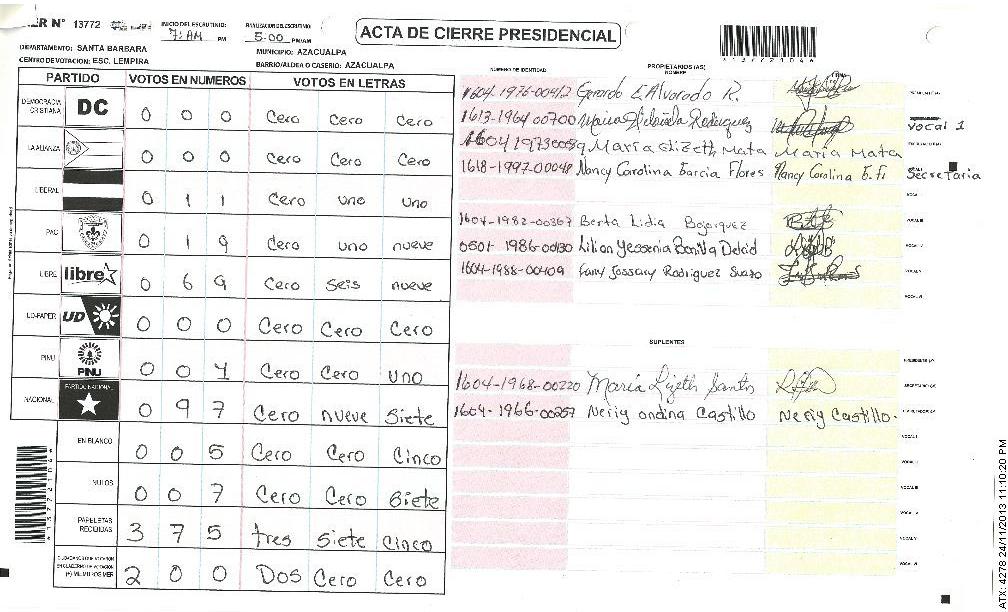 MER N° 13772
INICIO DEL ESCRUTINIO: 7:AM PM
FINALIZACION DEL ESCRUTINIO: 5:00 PM/AM
ACTA DE CIERRE PRESIDENCIAL
DEPARTAMENTO: SANTA BARBARA
MUNICIPIO: AZACUALPA
CENTRO DE VOTACION: ESC. LEMPIRA
BARRIO/ALDEA O CASERIO: AZACUALPA
PARTIDO VOTOS EN NUMEROS VOTOS EN LETRAS
DEMOCRACIA CRISTIANA DC 0 0 0 Cero Cero Cero
LA ALIANZA 0 0 0 Cero Cero Cero
LIBERAL 0 1 1 Cero uno uno
PAC 0 1 9 Cero uno nueve
LIBRE libre 0 6 9 Cero Seis nueve
UD-FAPER UD 0 0 0 Cero Cero Cero
PINU PINU 0 0 1 Cero Cero uno
NACIONAL PARTIDO NACIONAL 0 9 7 Cero nueve Siete
EN BLANCO 0 0 5 Cero Cero Cinco
NULOS 0 0 7 Cero Cero Siete
PAPELETAS RECIBIDAS 3 7 5 tres Siete Cinco
CIUDADANOS QUE VOTARON EN CUADERNO DE VOTACION (+) MIEMBROS MER 2 0 0 DOS Cero Cero
NUMERO DE IDENTIDAD PROPIETARIOS (AS) NOMBRE FIRMA
1604-1976-00412 Gerardo E Alvarado R.
1613-1964-00700 Rodriguez Vocal 1
María Elizeth Mata María Mata
1618-1997-00048 Nancy Carolina Garcia Flores Nancy Carolina Secretaria
1604-1982-00367 Berta Lidia Bojorquez
0501-1986-00130 Lilian Yessenia Bonilla Delcid
1604-1988-00409 Fany Jossary Rodriguez Suazo
SUPLENTES
1604-1968-00220 María Lizeth Santos
1604-1966-00257 Neriy ondina Castillo Neriy Castillo.
ATX: 4278 24/11/2013 11:10:20 PM